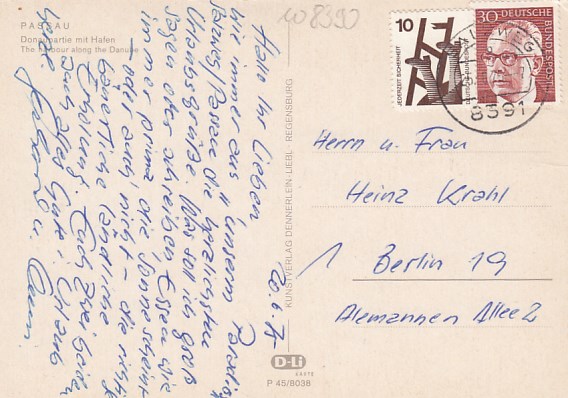 PASSAU
Donaupartie mit Hafen
The harbour along the Danube
108390
20. 6. 75
Hallo Ihr Lieben
wie immer aus "unserm"
/Passau die herzlichsten
Urlaubsgrüße. Was soll ich groß
sagen oder schreiben, Essen wie
immer prima die Sonne scheint
oder auch nicht – die richtige
ländliche
Erholung. Euch zwei beiden
auch alles Gute
KUNSTVERLAG DENNERLEIN LIEBL · REGENSBURG
D-Li
P 45/8038
10
JEDERZEIT SICHERHEIT
30
DEUTSCHE BUNDESPOST
8391
Herrn u. Frau
Heinz Krahl
1 Berlin 19
Alemannen Allee 2